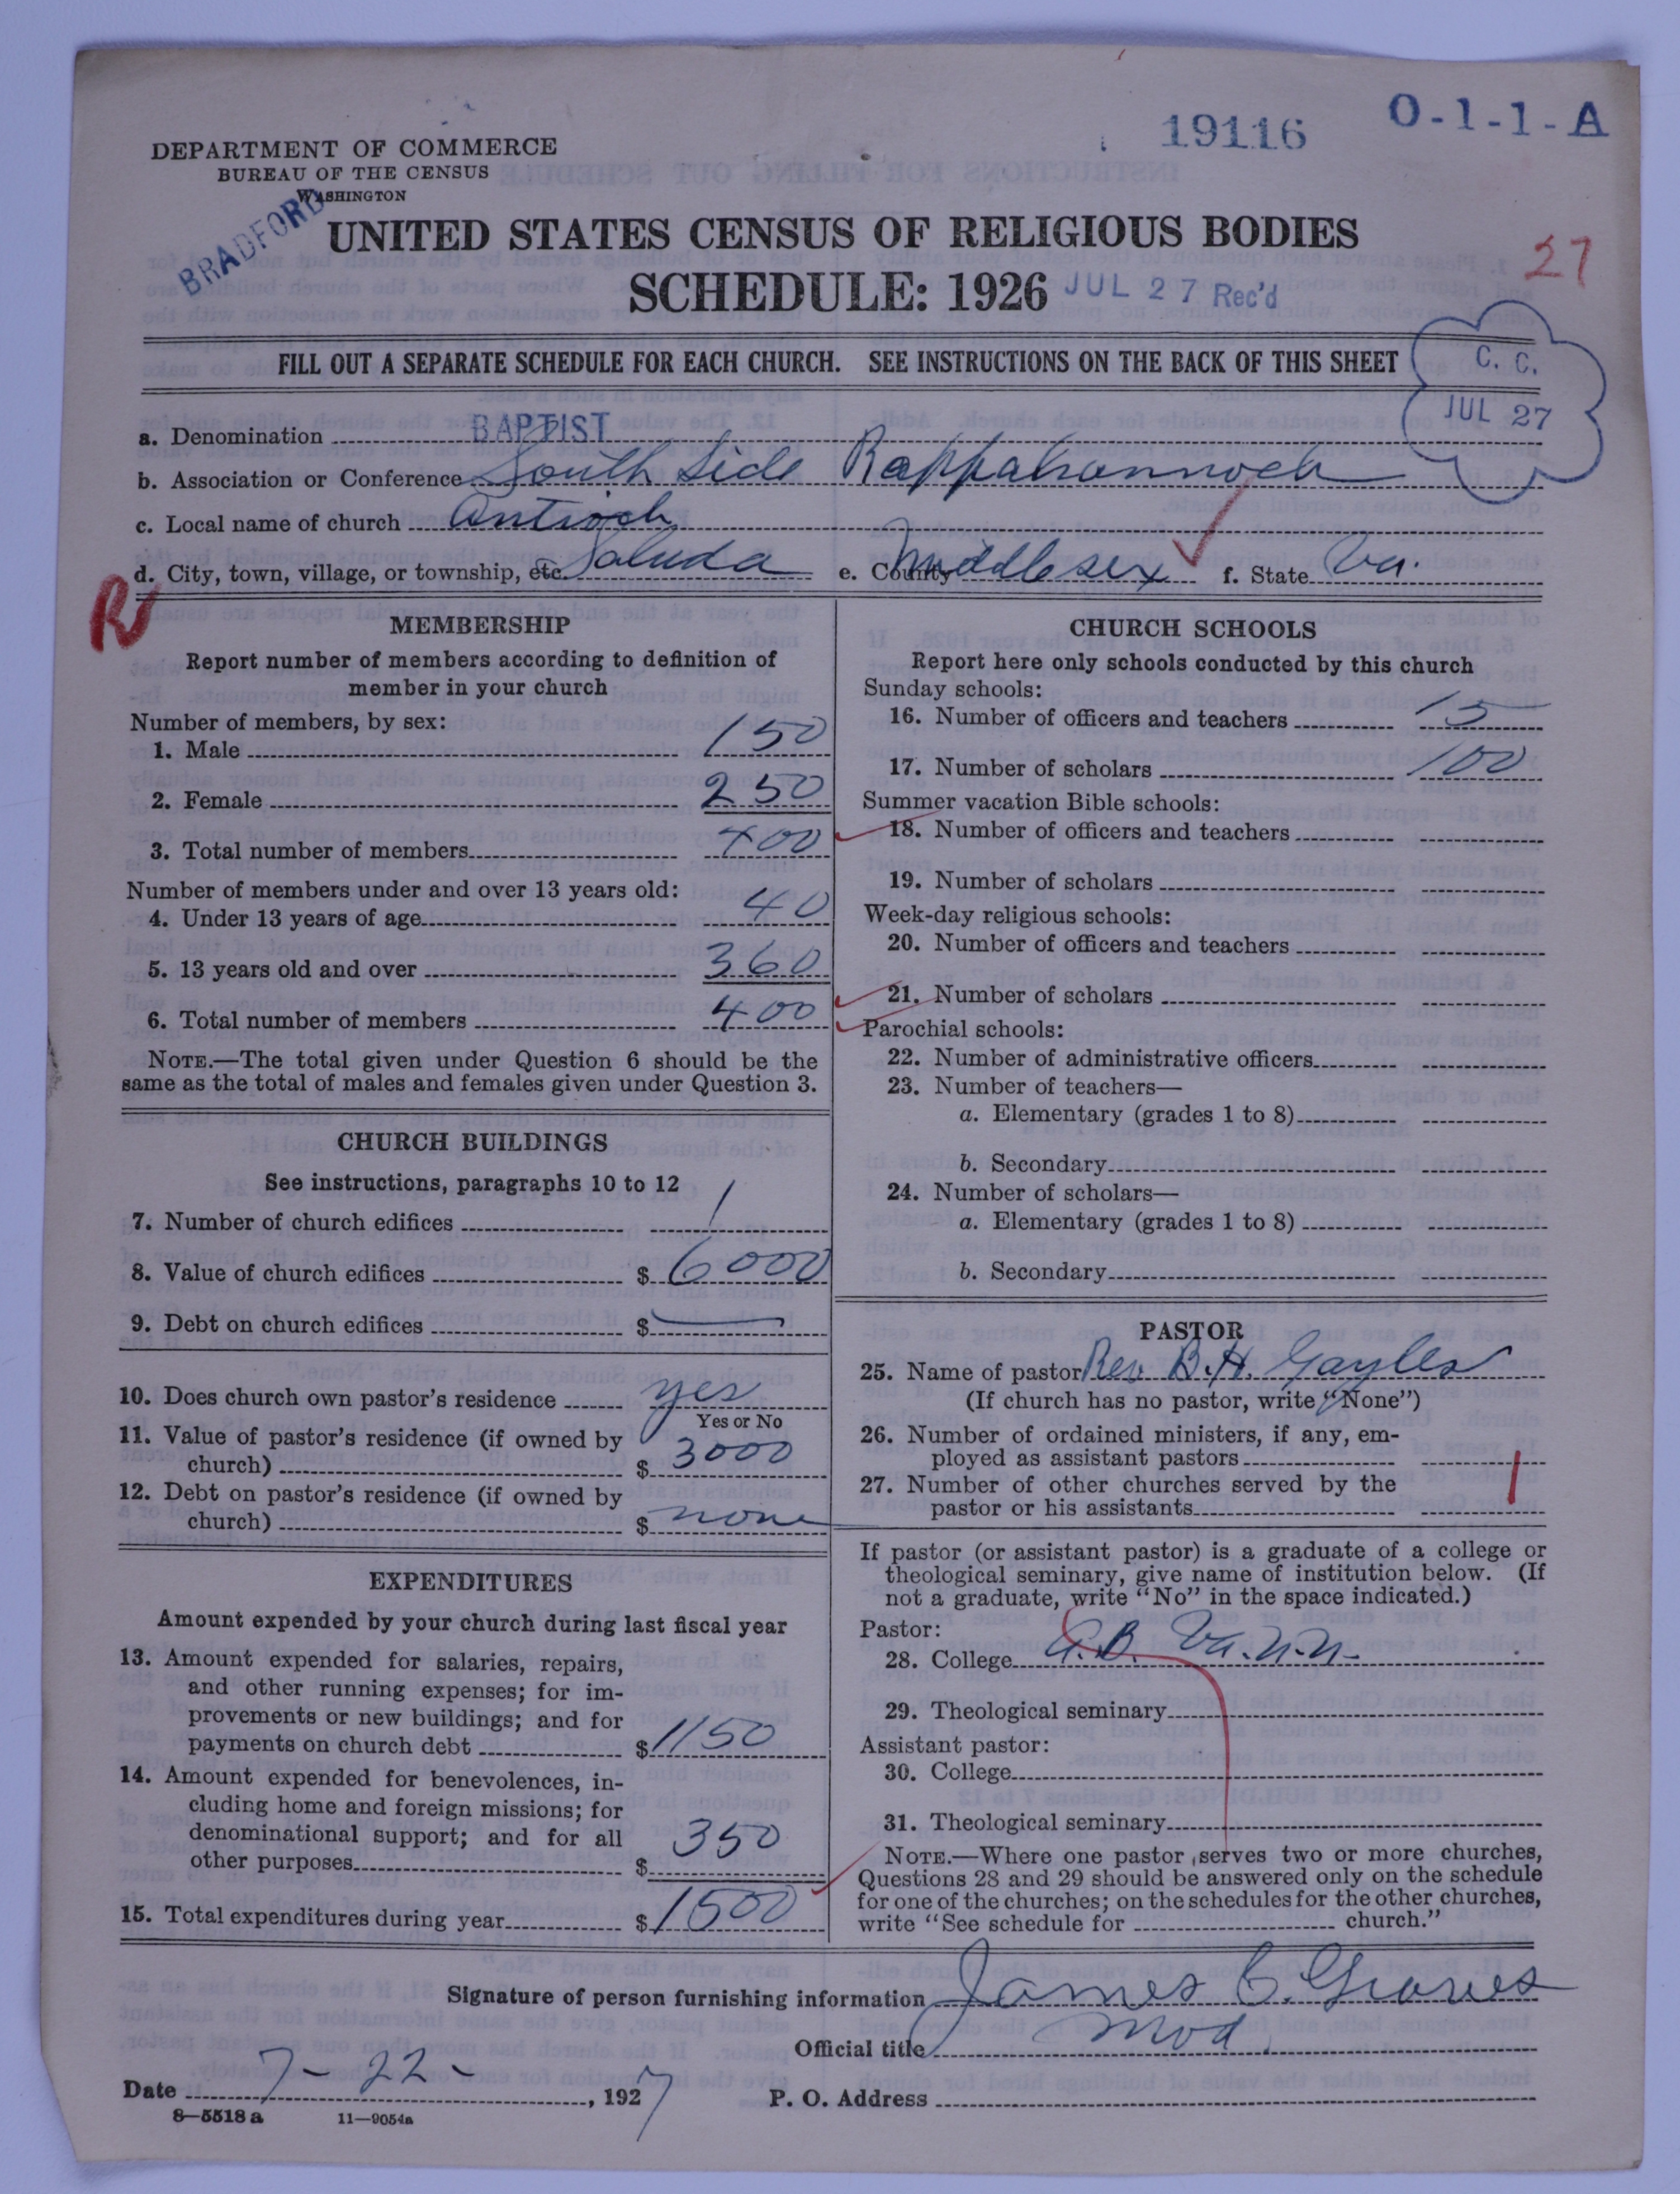 19116 O-1-1-A
DEPARTMENT OF COMMERCE
BUREAU OF THE CENSUS
WASHINGTON
BRADFORD
UNITED STATES CENSUS OF RELIGIOUS BODIES
27
SCHEDULE: 1926 JUL 27 Rec'd
FILL OUT A SEPARATE SCHEDULE FOR EACH CHURCH. SEE INSTRUCTIONS ON THE BACK OF THIS SHEET
C. C.
JUL 27
a. Denomination BAPTIST
b. Association or Conference South Side Rappahannock
c. Local name of church Antioch
d. City, town, village, or township, etc. Saluda e. County Middlesex f. State Va.
R
MEMBERSHIP
Report number of members according to definition of
member in your church
Number of members, by sex:
1. Male 150
2. Female 250
3. Total number of members 400
Number of members under and over 13 years old:
4. Under 13 years of age 40
5. 13 years old and over 360
6. Total number of members 400
NOTE.—The total given under Question 6 should be the
same as the total of males and females given under Question 3.
CHURCH BUILDINGS
See instructions, paragraphs 10 to 12
7. Number of church edifices 1
8. Value of church edifices $ 6000
9. Debt on church edifices $ —
10. Does church own pastor's residence yes
Yes or No
11. Value of pastor's residence (if owned by
church) $ 3000
12. Debt on pastor's residence (if owned by
church) $ none
EXPENDITURES
Amount expended by your church during last fiscal year
13. Amount expended for salaries, repairs,
and other running expenses; for im-
provements or new buildings; and for
payments on church debt $ 1150
14. Amount expended for benevolences, in-
cluding home and foreign missions; for
denominational support; and for all
other purposes $ 350
15. Total expenditures during year $ 1500
CHURCH SCHOOLS
Report here only schools conducted by this church
Sunday schools:
16. Number of officers and teachers 15
17. Number of scholars 100
Summer vacation Bible schools:
18. Number of officers and teachers
19. Number of scholars
Week-day religious schools:
20. Number of officers and teachers
21. Number of scholars
Parochial schools:
22. Number of administrative officers
23. Number of teachers—
a. Elementary (grades 1 to 8)
b. Secondary
24. Number of scholars—
a. Elementary (grades 1 to 8)
b. Secondary
PASTOR
25. Name of pastor Rev. B.H. Gayles
(If church has no pastor, write "None")
26. Number of ordained ministers, if any, em-
ployed as assistant pastors
27. Number of other churches served by the
pastor or his assistants 1
If pastor (or assistant pastor) is a graduate of a college or
theological seminary, give name of institution below. (If
not a graduate, write "No" in the space indicated.)
Pastor:
28. College A.B. Va.N.N.
29. Theological seminary
Assistant pastor:
30. College
31. Theological seminary
NOTE.—Where one pastor serves two or more churches,
Questions 28 and 29 should be answered only on the schedule
for one of the churches; on the schedules for the other churches,
write "See schedule for church."
Signature of person furnishing information James C. Graves
Official title Mod.
Date 7-22-, 1927 P. O. Address
8—5518 a 11—9054a